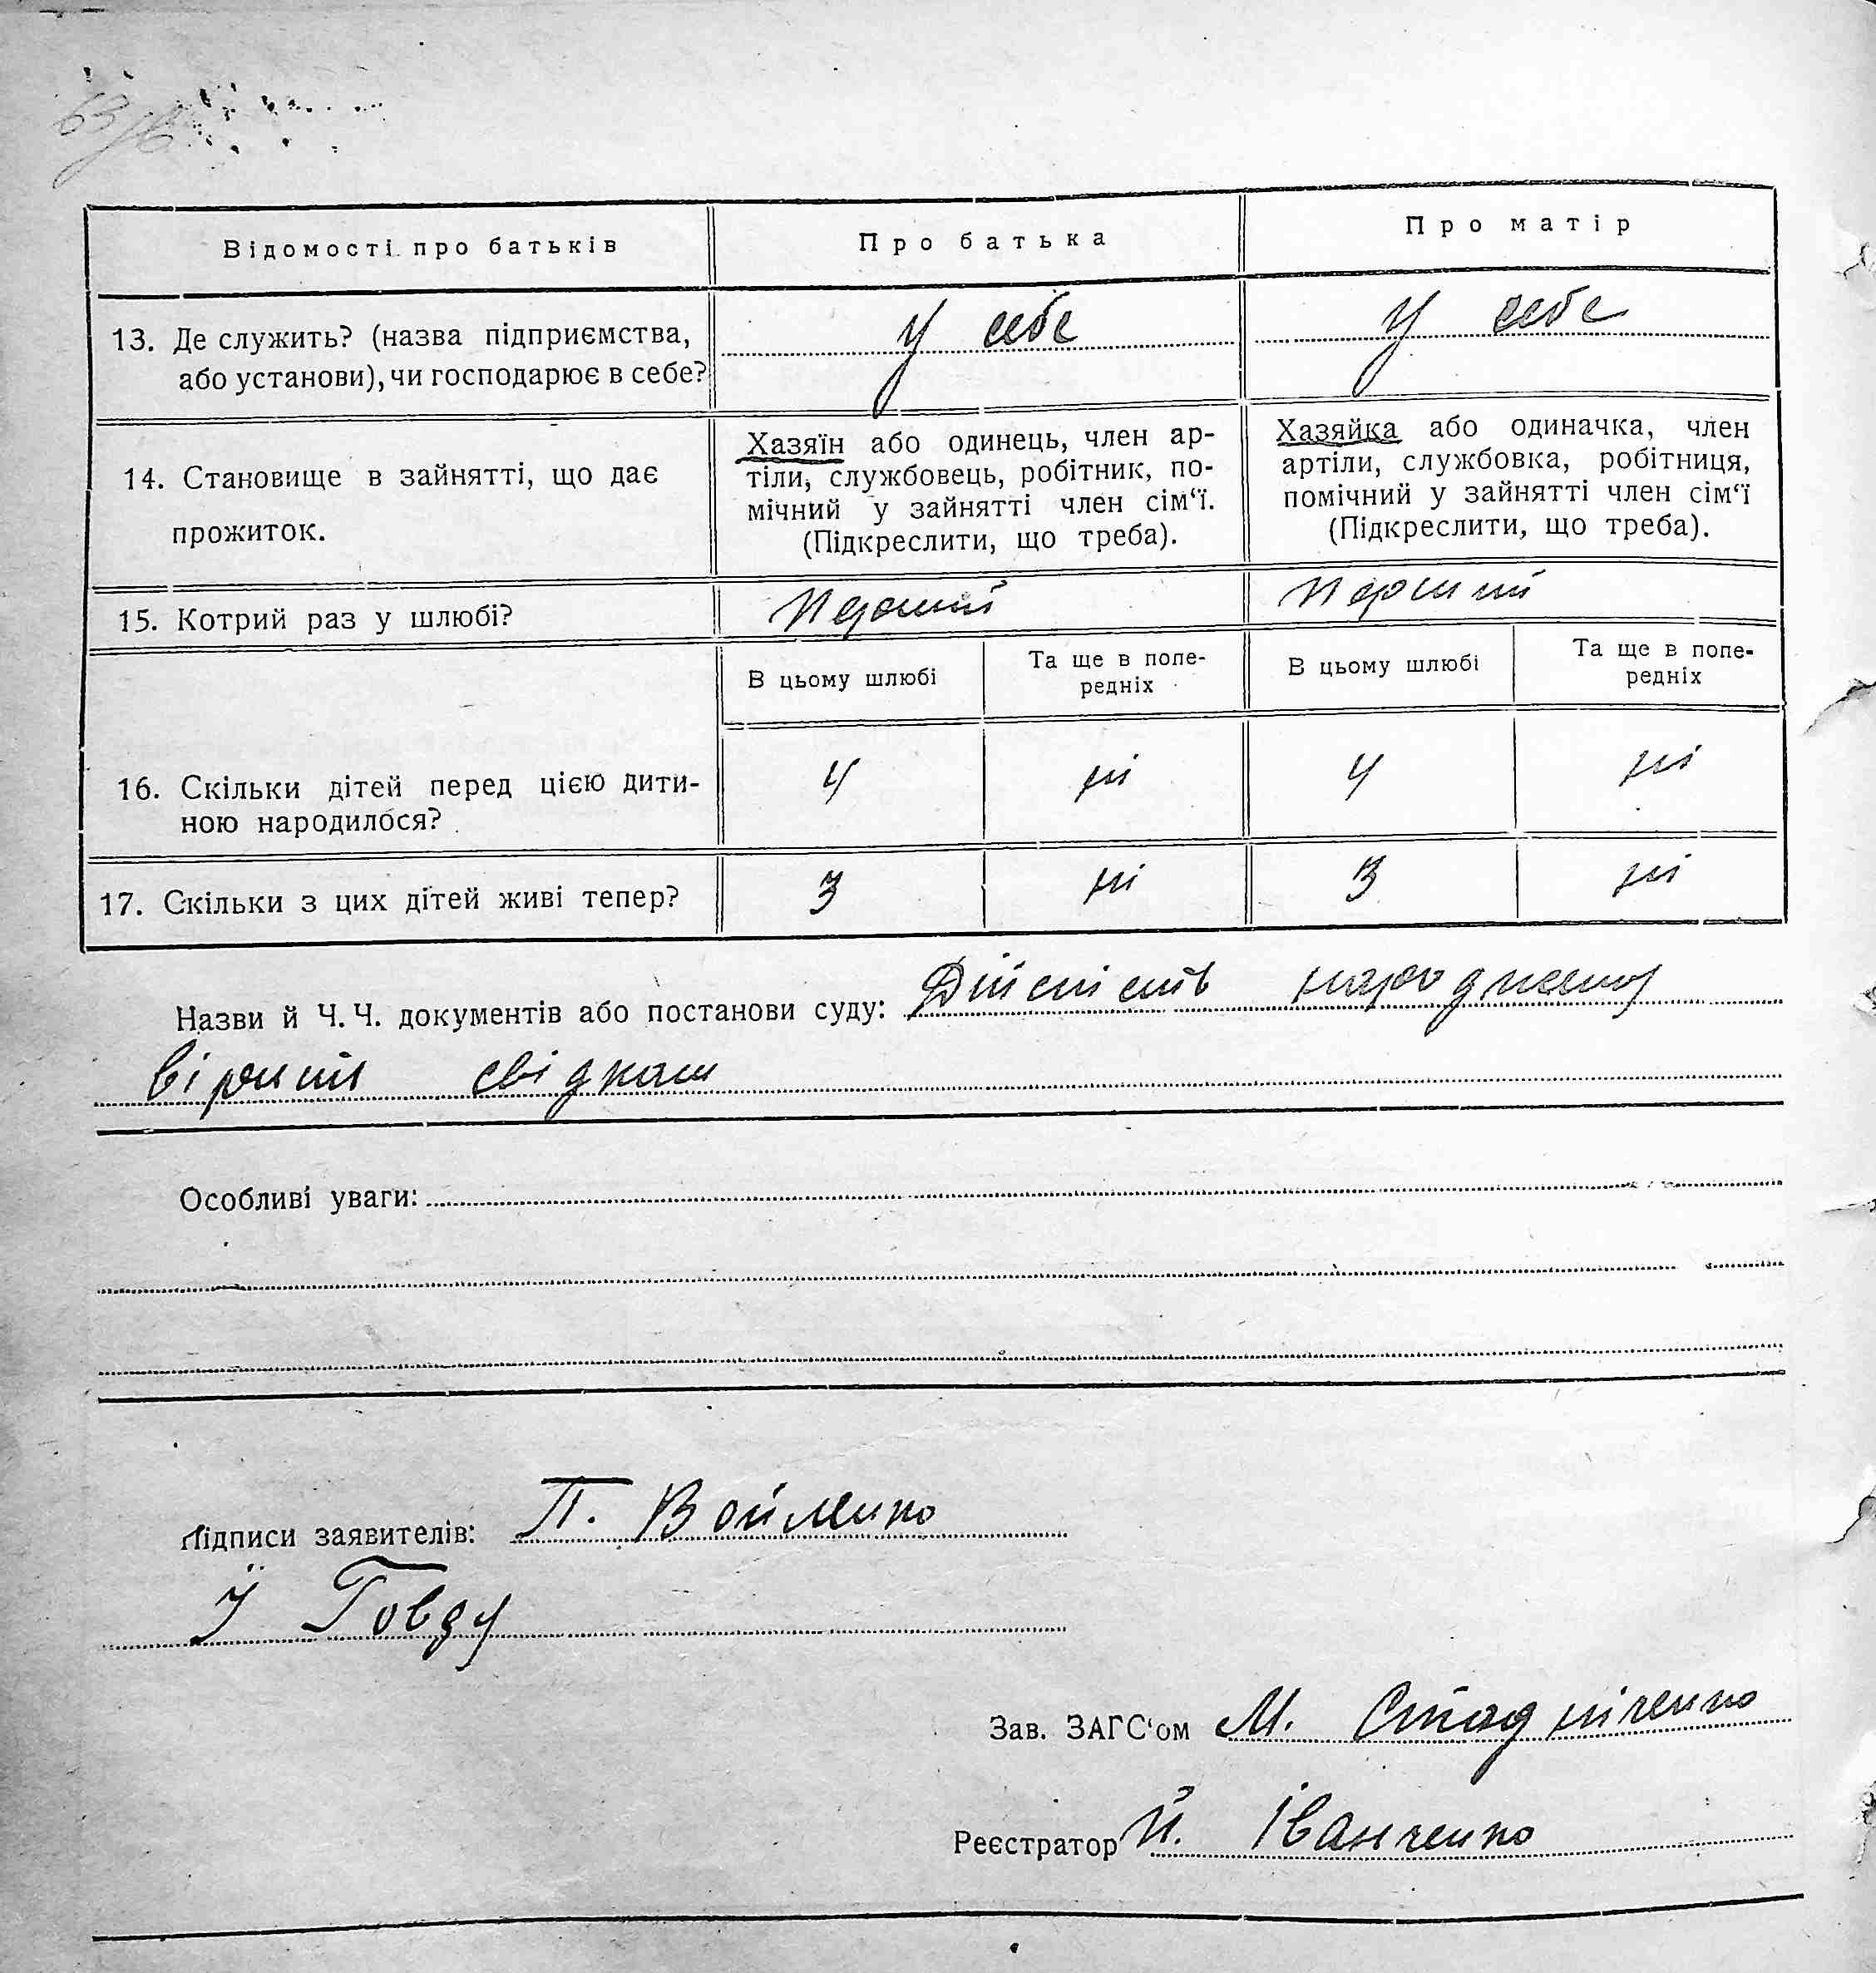 Відомості про батьків
Про батька
Про матір
13. Де служить? (назва підприємства,
або установи), чи господарює в себе?
У себе
У себе
14. Становище в зайнятті, що дає
прожиток.
Хазяїн або одинець, член ар-
тіли, службовець, робітник, по-
мічний у зайнятті член сім‘ї.
(Підкреслити, що треба).
Хазяйка або одиначка, член
артіли, службовка, робітниця,
помічний у зайнятті член сім‘ї
(Підкреслити, що треба).
15. Котрий раз у шлюбі?
Перший
Перший
В цьому шлюбі
Та ще в попе-
редніх
В цьому шлюбі
Та ще в попе-
редніх
16. Скільки дітей перед цією дити-
ною народилося?
4
ні
4
ні
17. Скільки з цих дітей живі тепер?
3
ні
3
ні
Назви й Ч. Ч. документів або постанови суду: Дійсність
свідками
Особливі уваги:
Підписи заявителів: П.
Зав. ЗАГС‘ом М. Стадніченко
Реєстратор Й. Іванченко